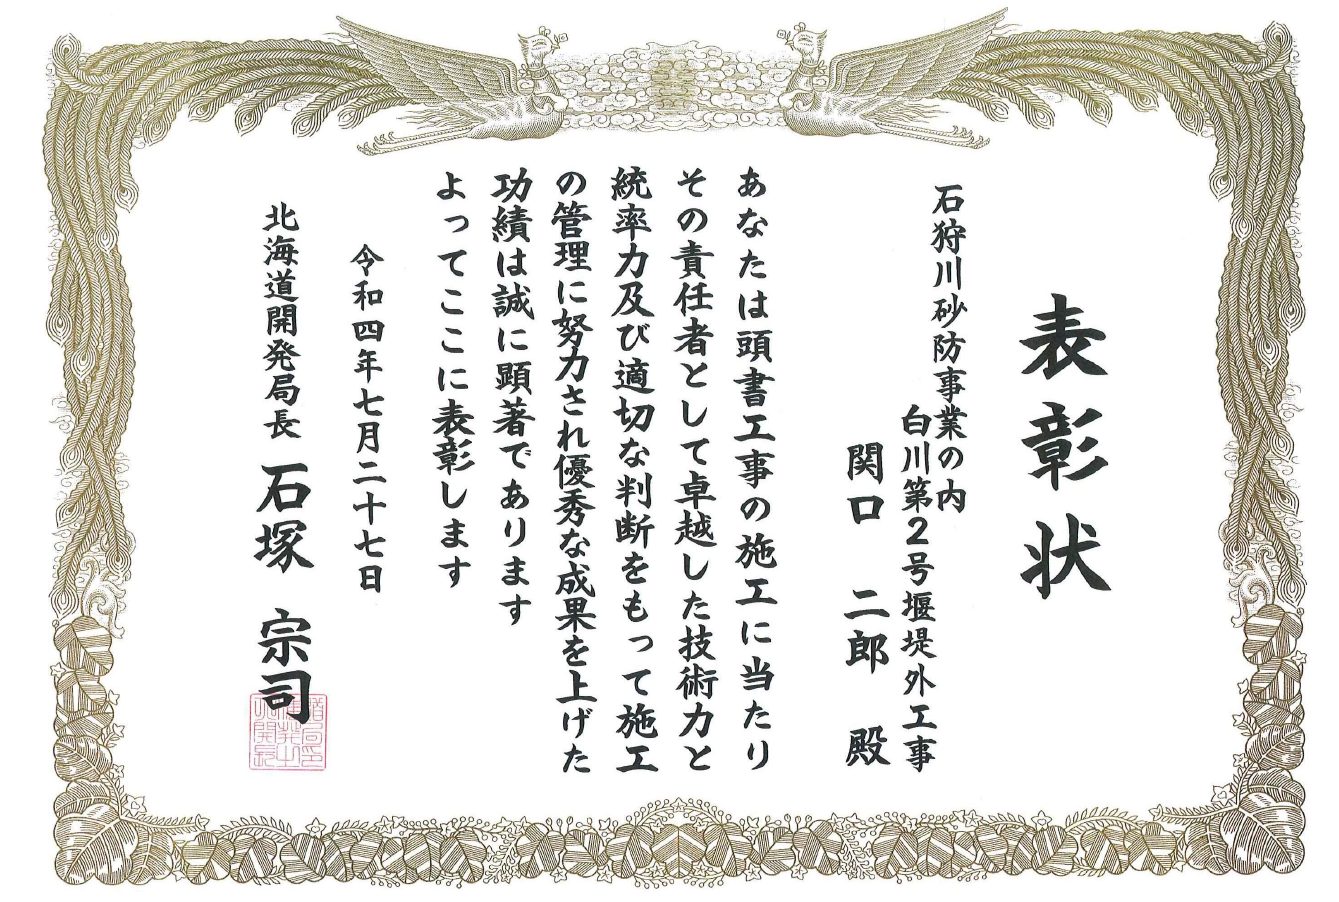 表彰状
石狩川砂防事業の内
白川第2号堰堤外工事
関口 二郎 殿
あなたは頭書工事の施工に当たり
その責任者として卓越した技術力と
統率力及び適切な判断をもって施工
の管理に努力され優秀な成果を上げた
功績は誠に顕著であります
よってここに表彰します
令和四年七月二十七日
北海道開発局長 石塚 宗司